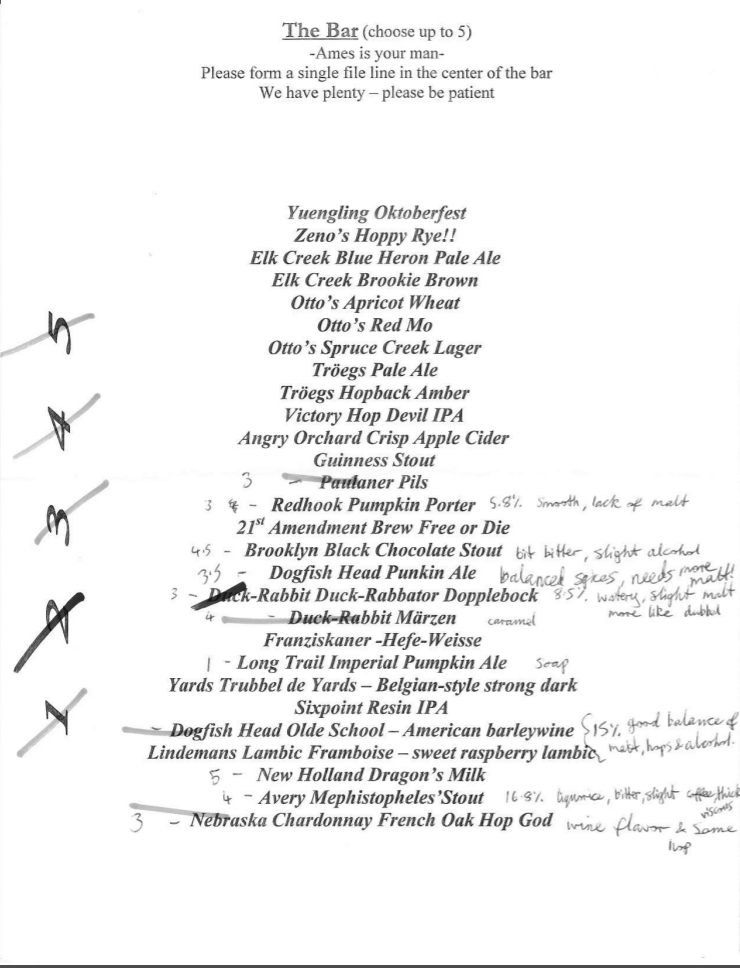 The Bar (choose up to 5)
-Ames is your man-
Please form a single file line in the center of the bar
We have plenty – please be patient
Yuengling Oktoberfest
Zeno's Hoppy Rye!!
Elk Creek Blue Heron Pale Ale
Elk Creek Brookie Brown
Otto's Apricot Wheat
5
Otto's Red Mo
Otto's Spruce Creek Lager
Tröegs Pale Ale
Tröegs Hopback Amber
4
Victory Hop Devil IPA
Angry Orchard Crisp Apple Cider
Guinness Stout
3 - Paulaner Pils
3 4 - Redhook Pumpkin Porter 5.8% Smooth, lack of malt
3
21st Amendment Brew Free or Die
4.5 - Brooklyn Black Chocolate Stout bit bitter, slight alcohol
3.5 - Dogfish Head Punkin Ale balanced spices, needs more malt!
3 - Duck-Rabbit Duck-Rabbator Dopplebock 8.5% watery, slight malt
more like dubbel
2
4 - Duck-Rabbit Märzen caramel
Franziskaner -Hefe-Weisse
1 - Long Trail Imperial Pumpkin Ale Soap
Yards Trubbel de Yards – Belgian-style strong dark
Sixpoint Resin IPA
1
- Dogfish Head Olde School – American barleywine 15% good balance of
malt, hops & alcohol.
Lindemans Lambic Framboise – sweet raspberry lambic
5 - New Holland Dragon's Milk
4 - Avery Mephistopheles'Stout 16.8% liquorice, bitter, slight coffee, thick
viscous
3 - Nebraska Chardonnay French Oak Hop God wine flavor & some
hop